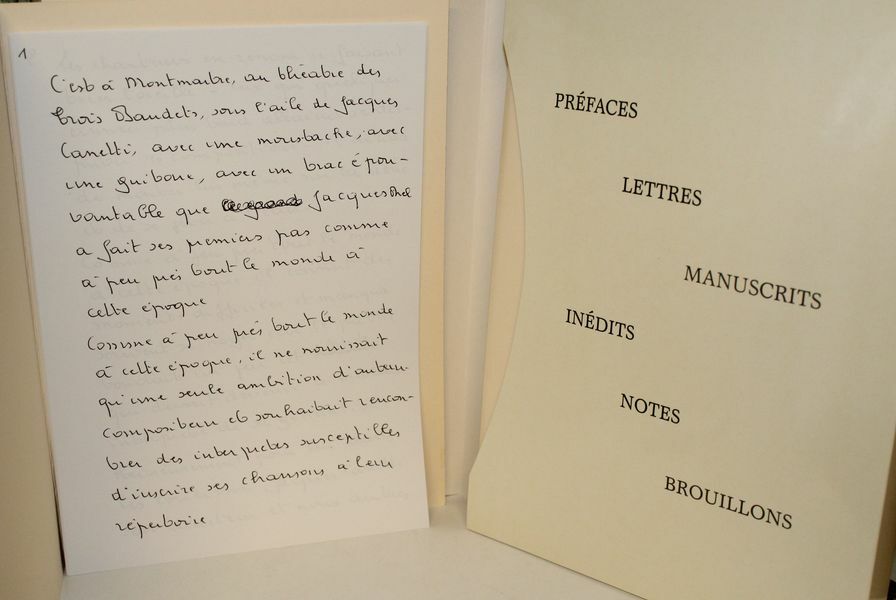 1
C'est à Montmartre, au théâtre des
Trois Baudets, sous l'aile de Jacques
Canetti, avec une moustache, avec
une guibone, avec un trac épou-
vantable que Jacques Brel
a fait ses premiers pas comme
à peu près tout le monde à
cette époque
Comme à peu près tout le monde
à cette époque, il ne nourrissait
qu'une seule ambition d'auteur-
compositeur et souhaitait rencon-
trer des interprètes susceptibles
d'inscrire ses chansons à leur
répertoire
PRÉFACES
LETTRES
MANUSCRITS
INÉDITS
NOTES
BROUILLONS